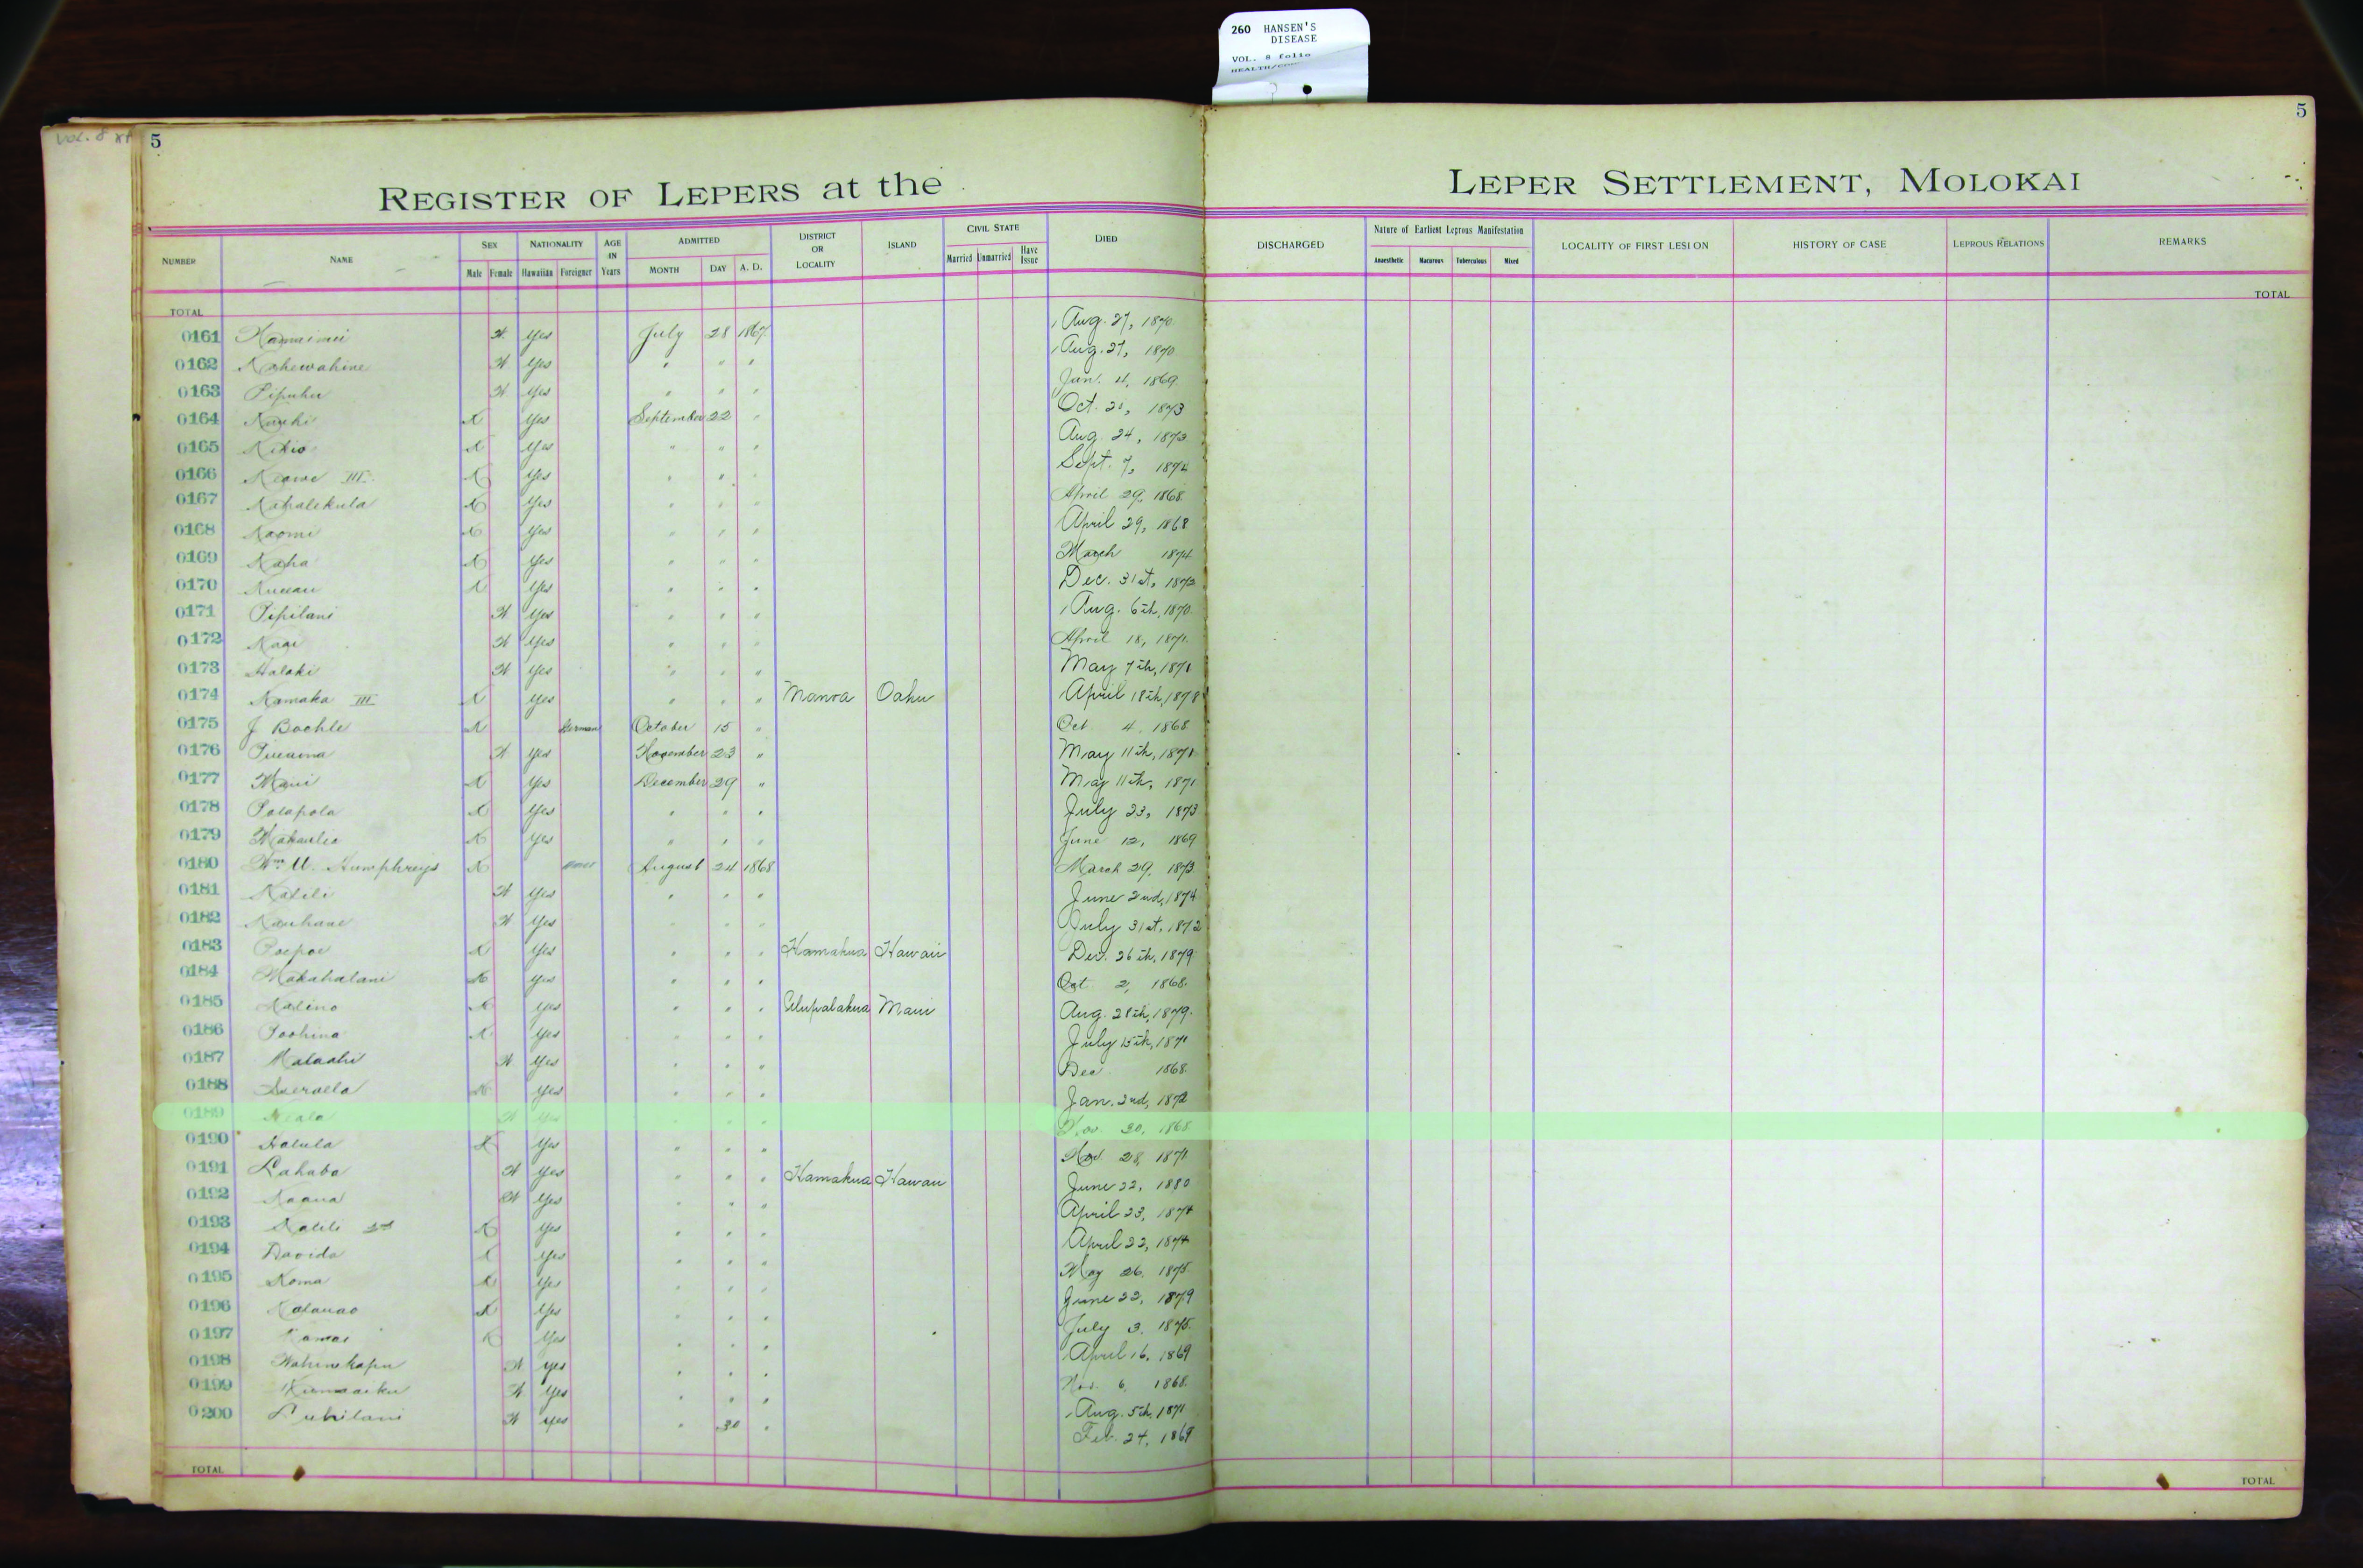 260 HANSEN'S
DISEASE
VOL. 8 folio
HEALTH/
VOL. 8
5
5
REGISTER OF LEPERS at the LEPER SETTLEMENT, MOLOKAI
NUMBER NAME SEX Male Female NATIONALITY Hawaiian Foreigner AGE IN Years ADMITTED MONTH DAY A. D. DISTRICT OR LOCALITY ISLAND CIVIL STATE Married Unmarried Have Issue DIED DISCHARGED Nature of Earliest Leprous Manifestation Anaesthetic Macurous Tuberculous Mixed LOCALITY OF FIRST LESION HISTORY OF CASE LEPROUS RELATIONS REMARKS
TOTAL TOTAL
0161 yes July 28 1867 Aug. 27, 1870
0162 Kahewahine yes " " " Aug. 27, 1870
0163 Pipuhu yes " " " Jan. 4, 1869
0164 yes September 22 " Oct. 1873
0165 Kikio yes " " " Aug. 24, 1873
0166 Keawe III yes " " " Sept. 7, 1874
0167 Kahalekula yes " " " April 29, 1868
0168 Naomi yes " " " April 29, 1868
0169 Kaha yes " " " March 1874
0170 yes " " " Dec. 31st, 1873
0171 Pipilani yes " " " Aug. 6th, 1870
0172 yes " " " April 18, 1871
0173 Halaki yes " " " May 7th, 1871
0174 Kamaka III yes " " " Manoa Oahu April 18th, 1878
0175 J Bochle German October 15 " Oct 4, 1868
0176 yes November 23 " May 11th, 1871
0177 Maui yes December 29 " May 11th, 1871
0178 Polapola yes " " " July 23, 1873
0179 yes " " " June 12, 1869
0180 Wm. Humphreys August 24 1868 March 29, 1873
0181 Kalili yes " " " June 2nd, 1874
0182 Kauhane yes " " " July 31st, 1872
0183 Poepoe yes " " " Hamakua Hawaii Dec. 26th, 1879
0184 Makahalani yes " " " Oct 2, 1868
0185 Kalino yes " " " Ulupalakua Maui Aug. 28th, 1879
0186 Poohina yes " " " July 15th, 1871
0187 Malaahi yes " " " Dec 1868
0188 yes " " " Jan. 2nd, 1872
0189 yes " " " Nov. 30, 1868
0190 Halula yes " " " Nov. 28, 1871
0191 Lahaba yes " " " Hamakua Hawaii June 22, 1880
0192 Kaaua yes " " " April 23, 1874
0193 Kalili 2nd yes " " " April 22, 1874
0194 Davida yes " " " May 26, 1875
0195 Koma yes " " " June 22, 1879
0196 Kalauao yes " " " July 3, 1875
0197 Kamai yes " " " April 16, 1869
0198 Wahinekapu yes " " " Nov. 6, 1868
0199 yes " " " Aug. 5th, 1871
0200 Luhilani yes " 30 " Feb. 24, 1869
TOTAL TOTAL